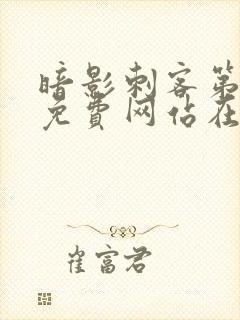 暗影刺客第
免费网佔在
崔富君